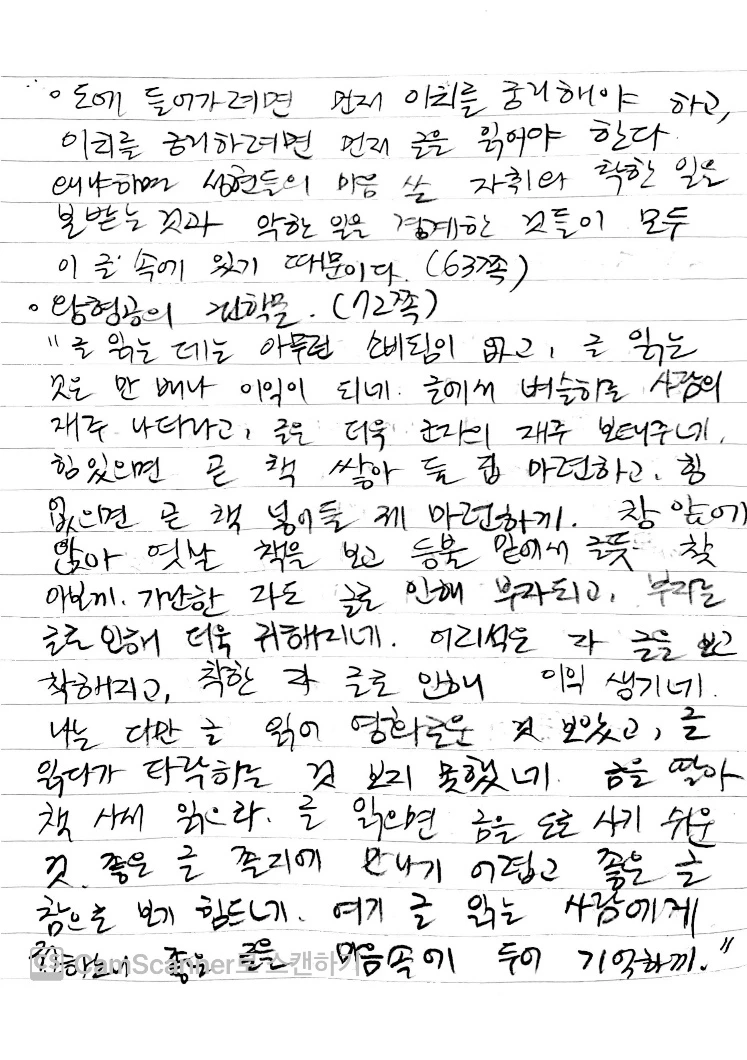 ◦ 도에 들어가려면 먼저 이치를 궁리해야 하고,
이치를 궁리하려면 먼저 글을 읽어야 한다.
왜냐하면 성현들의 마음 쓴 자취와 착한 일을
본받는 것과 악한 일을 경계한 것들이 모두
이 글 속에 있기 때문이다. (63쪽)
◦ 왕형공의 권학문. (72쪽)
"글 읽는 데는 아무런 소비됨이 없고, 글 읽는
것은 만 배나 이익이 되네. 글에서 벼슬하로 사람의
재주 나타나고, 글은 더욱 군자의 재주 보태주네.
힘있으면 곧 책 쌓아 둘 집 마련하고, 힘
없으면 곧 책 넣어둘 제 마련하끼. 창 앞에
앉아 옛날 책을 보고 등불 밑에서 글뜻 찾
아보끼. 가난한 자도 글로 인해 부자되고, 부자는
글로 인해 더욱 귀해지네. 어리석은 자 글을 보고
착해지고, 착한 자 글로 인해 이익 생기네.
나는 다만 글 읽어 영화로운 것 보았고, 글
읽다가 타락하는 것 보지 못했네. 금을 팔아
책 사서 읽으라. 글 읽으면 금을 도로 사기 쉬운
것. 좋은 글 졸지에 만나기 어렵고 좋은 글
참으로 보기 힘드네. 여기 글 읽는 사람에게
좋은 글을 마음속에 두어 기억하끼."
CamScanner로 스캔하기